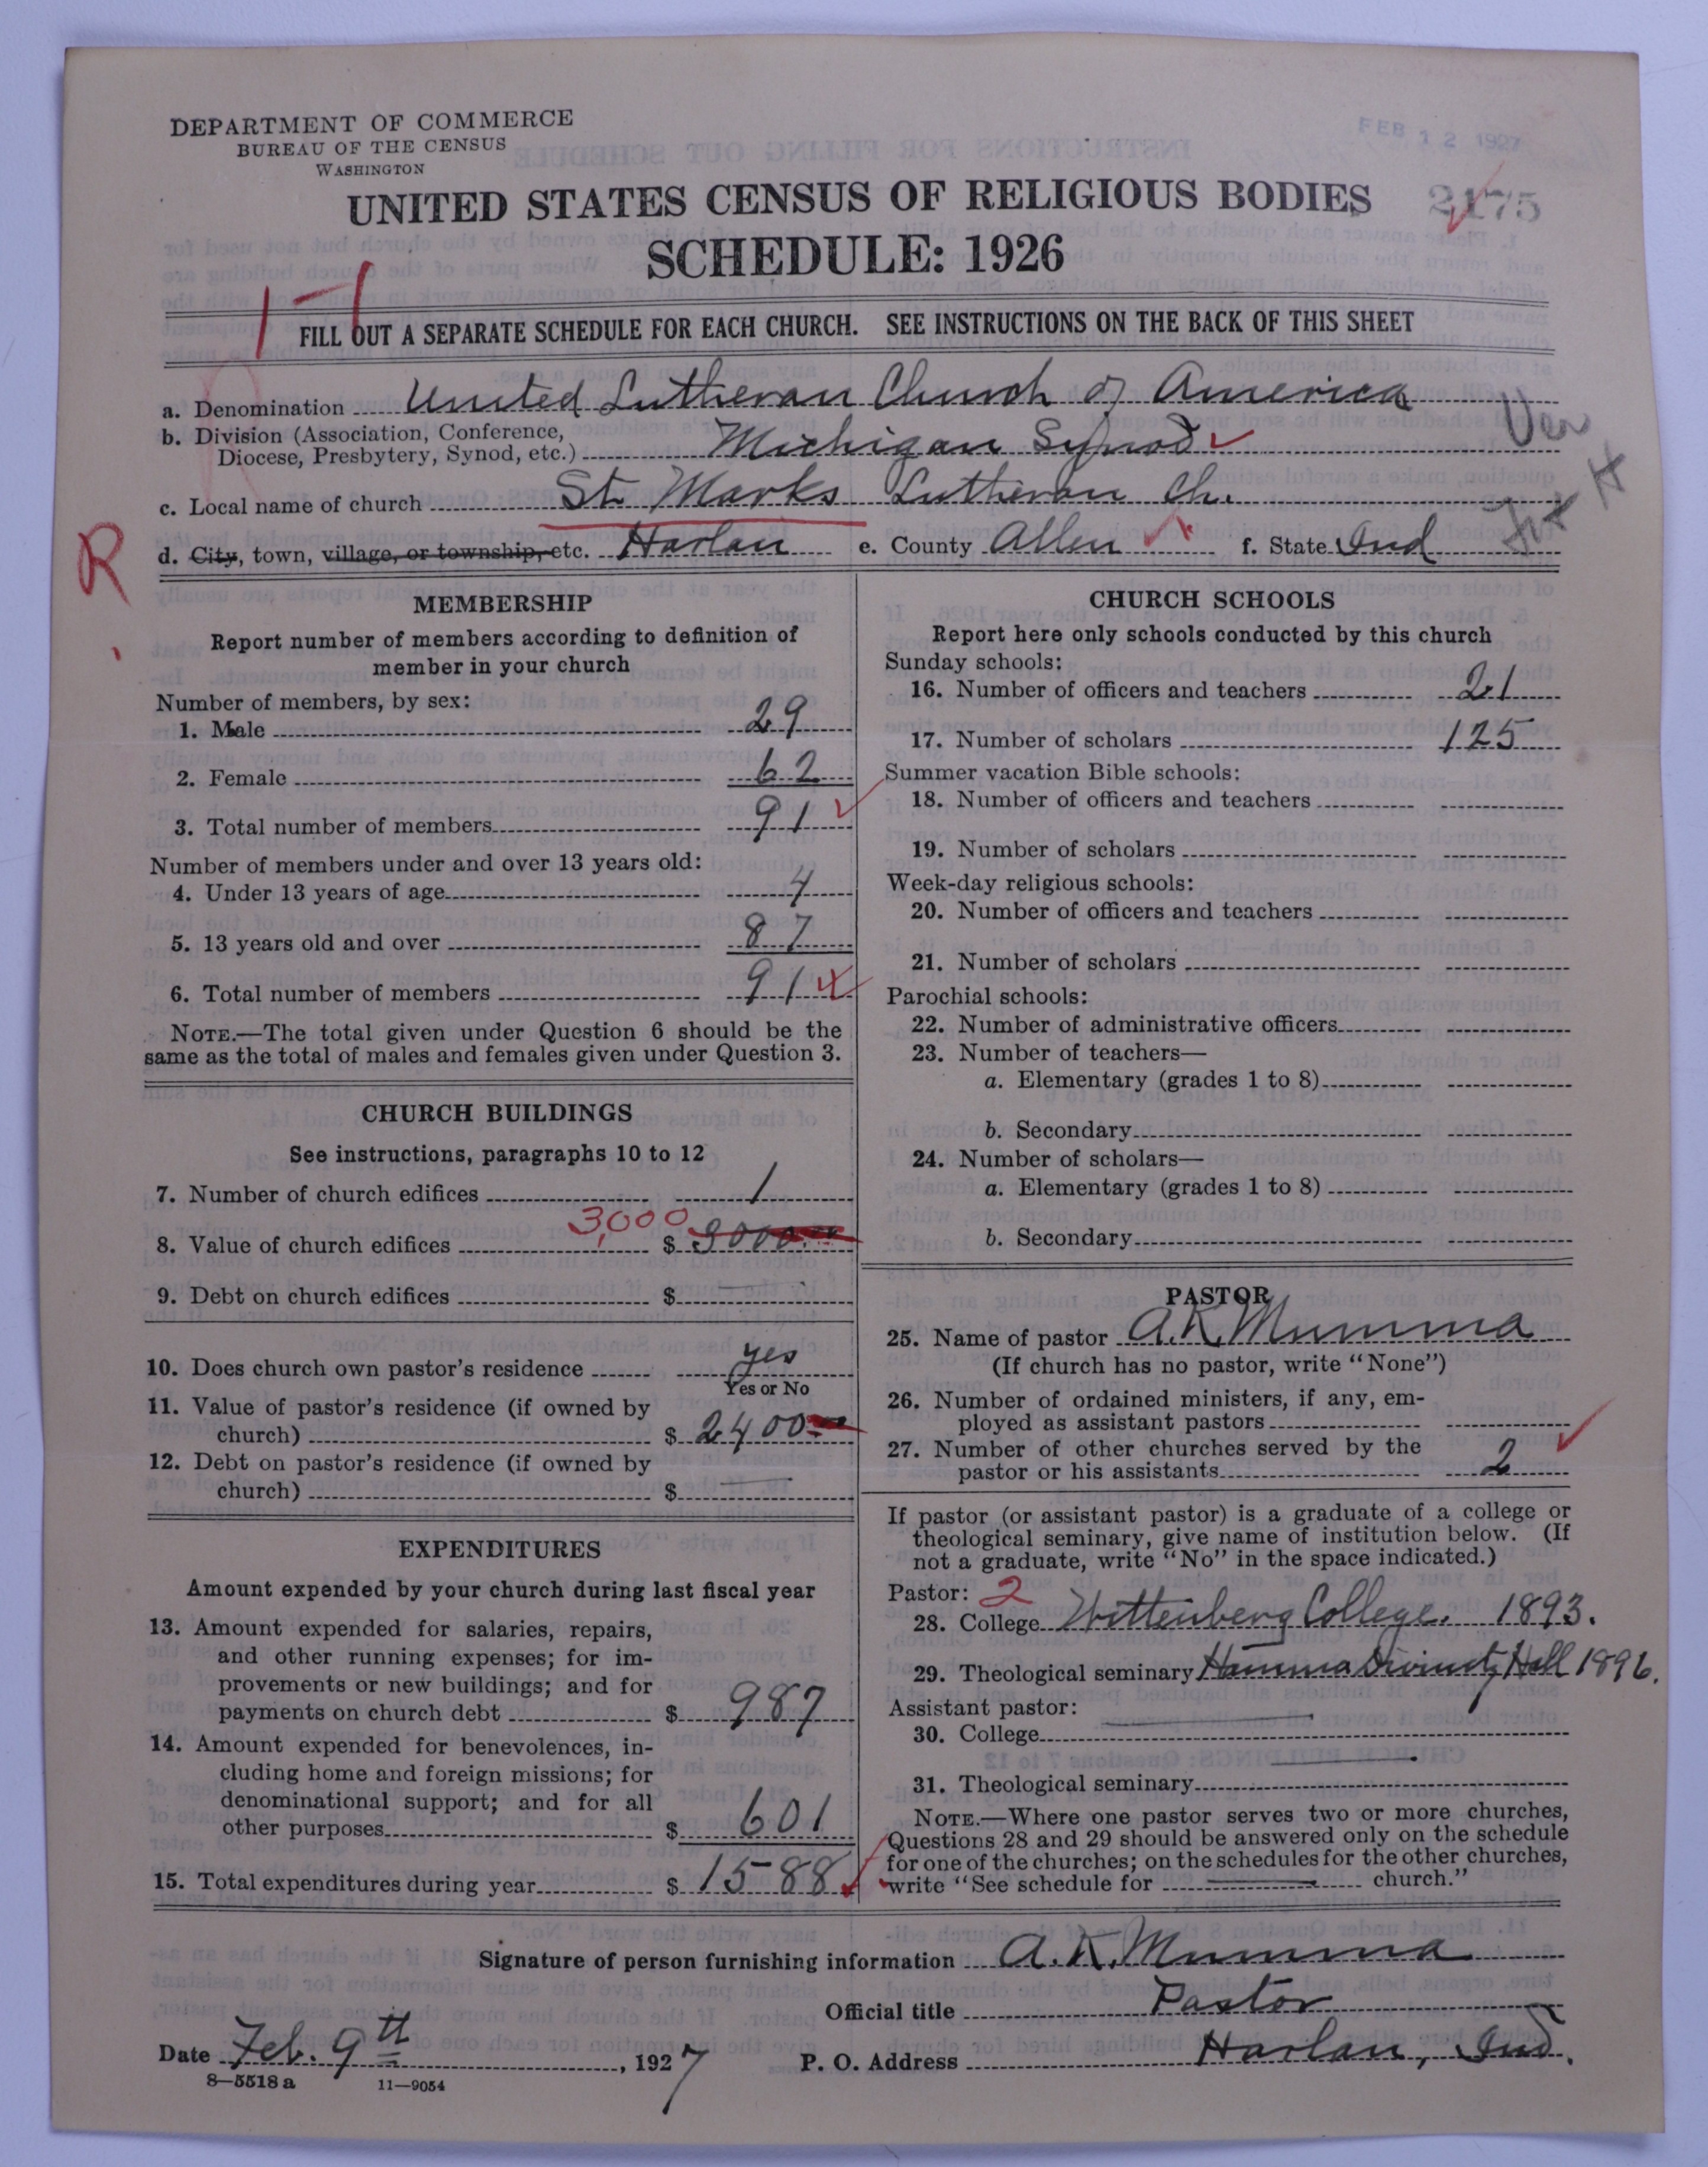 DEPARTMENT OF COMMERCE
BUREAU OF THE CENSUS
WASHINGTON
FEB 12 1927
UNITED STATES CENSUS OF RELIGIOUS BODIES
2175
SCHEDULE: 1926
FILL OUT A SEPARATE SCHEDULE FOR EACH CHURCH. SEE INSTRUCTIONS ON THE BACK OF THIS SHEET
a. Denomination United Lutheran Church of America
b. Division (Association, Conference,
Diocese, Presbytery, Synod, etc.) Michigan Synod
c. Local name of church St. Marks Lutheran Ch.
R
d. City, town, village, or township, etc. Harlan e. County Allen f. State Ind
MEMBERSHIP
Report number of members according to definition of
member in your church
Number of members, by sex:
1. Male 29
2. Female 62
3. Total number of members 91
Number of members under and over 13 years old:
4. Under 13 years of age 4
5. 13 years old and over 87
6. Total number of members 91
NOTE.—The total given under Question 6 should be the
same as the total of males and females given under Question 3.
CHURCH BUILDINGS
See instructions, paragraphs 10 to 12
7. Number of church edifices 1
3,000
8. Value of church edifices $ 3000
9. Debt on church edifices $
10. Does church own pastor's residence yes
Yes or No
11. Value of pastor's residence (if owned by
church) $ 2400
12. Debt on pastor's residence (if owned by
church) $
EXPENDITURES
Amount expended by your church during last fiscal year
13. Amount expended for salaries, repairs,
and other running expenses; for im-
provements or new buildings; and for
payments on church debt $ 987
14. Amount expended for benevolences, in-
cluding home and foreign missions; for
denominational support; and for all
other purposes $ 601
15. Total expenditures during year $ 1588
CHURCH SCHOOLS
Report here only schools conducted by this church
Sunday schools:
16. Number of officers and teachers 21
17. Number of scholars 125
Summer vacation Bible schools:
18. Number of officers and teachers
19. Number of scholars
Week-day religious schools:
20. Number of officers and teachers
21. Number of scholars
Parochial schools:
22. Number of administrative officers
23. Number of teachers—
a. Elementary (grades 1 to 8)
b. Secondary
24. Number of scholars—
a. Elementary (grades 1 to 8)
b. Secondary
PASTOR
25. Name of pastor A.K. Mumma
(If church has no pastor, write "None")
26. Number of ordained ministers, if any, em-
ployed as assistant pastors
27. Number of other churches served by the
pastor or his assistants 2
If pastor (or assistant pastor) is a graduate of a college or
theological seminary, give name of institution below. (If
not a graduate, write "No" in the space indicated.)
Pastor: 2
28. College Wittenberg College. 1893.
29. Theological seminary Hamma Divinity Hall 1896.
Assistant pastor:
30. College
31. Theological seminary
NOTE.—Where one pastor serves two or more churches,
Questions 28 and 29 should be answered only on the schedule
for one of the churches; on the schedules for the other churches,
write "See schedule for church."
Signature of person furnishing information A. K. Mumma
Official title Pastor
Date Feb. 9th, 1927 P. O. Address Harlan, Ind.
8—5518 a 11—9054